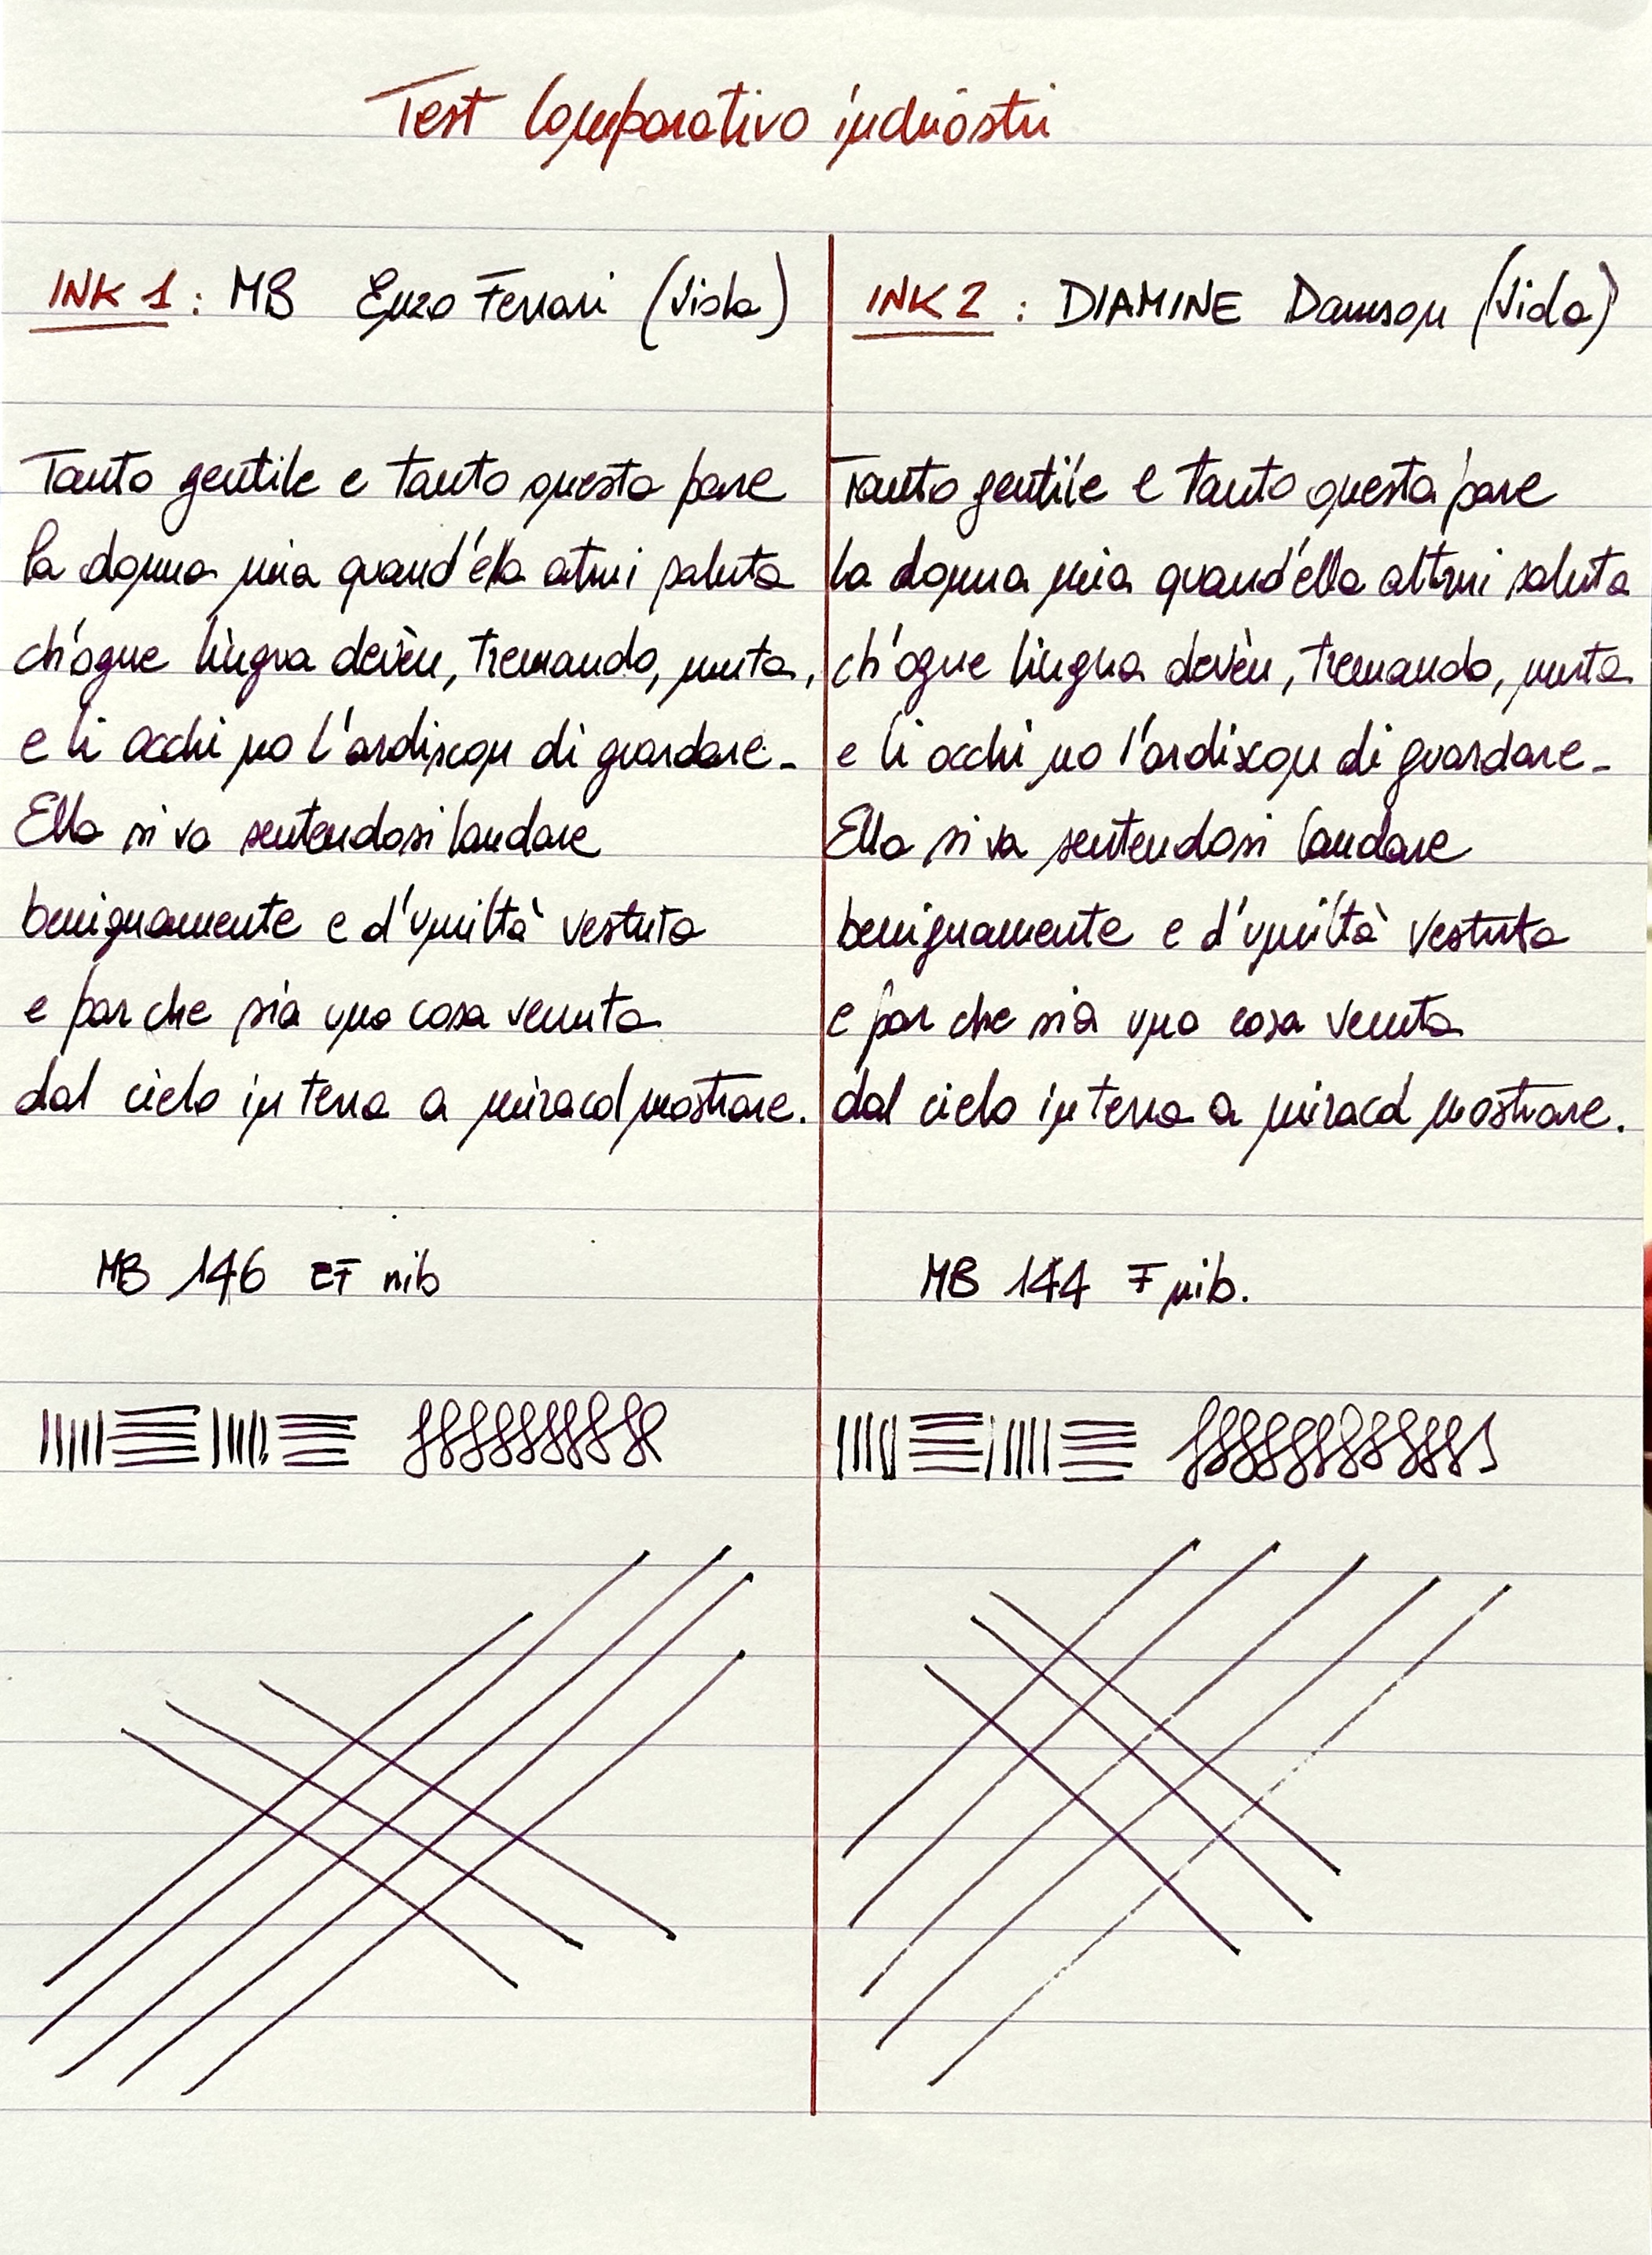 Test Comparativo inchiostri
INK 1 : MB Enzo Ferrari (Viola)
Tanto gentile e tanto questa pare
la donna mia quand'ella altrui saluta
ch'ogne lingua devèn, tremando, muta,
e li occhi no l'ardiscon di guardare.
Ella si va sentendosi laudare
benignamente e d'umiltà vestuta
e par che sia una cosa venuta
dal cielo in terra a miracol mostrare.
MB 146 EF nib
INK 2 : DIAMINE Damson (Viola)
Tanto gentile e tanto questa pare
la donna mia quand'ella altrui saluta
ch'ogne lingua devèn, tremando, muta
e li occhi no l'ardiscon di guardare.
Ella si va sentendosi laudare
benignamente e d'umiltà vestuta
e par che sia una cosa venuta
dal cielo in terra a miracol mostrare.
MB 144 F nib.